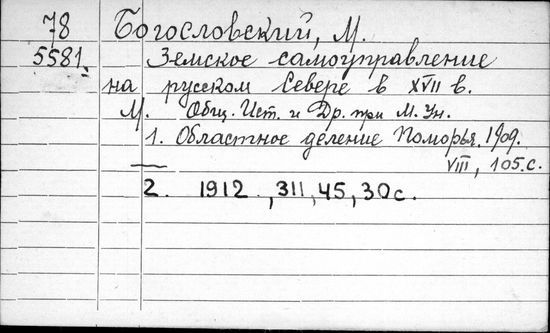 78 Богословский, М.
5581. Земское самоуправление
на русском Севере в XVII в.
М. Общ. Ист. и Др. при М. Ун.
1. Областное деление Поморья. 1909.
VIII, 105.с.
2. 1912, 311, 45, 30 с.